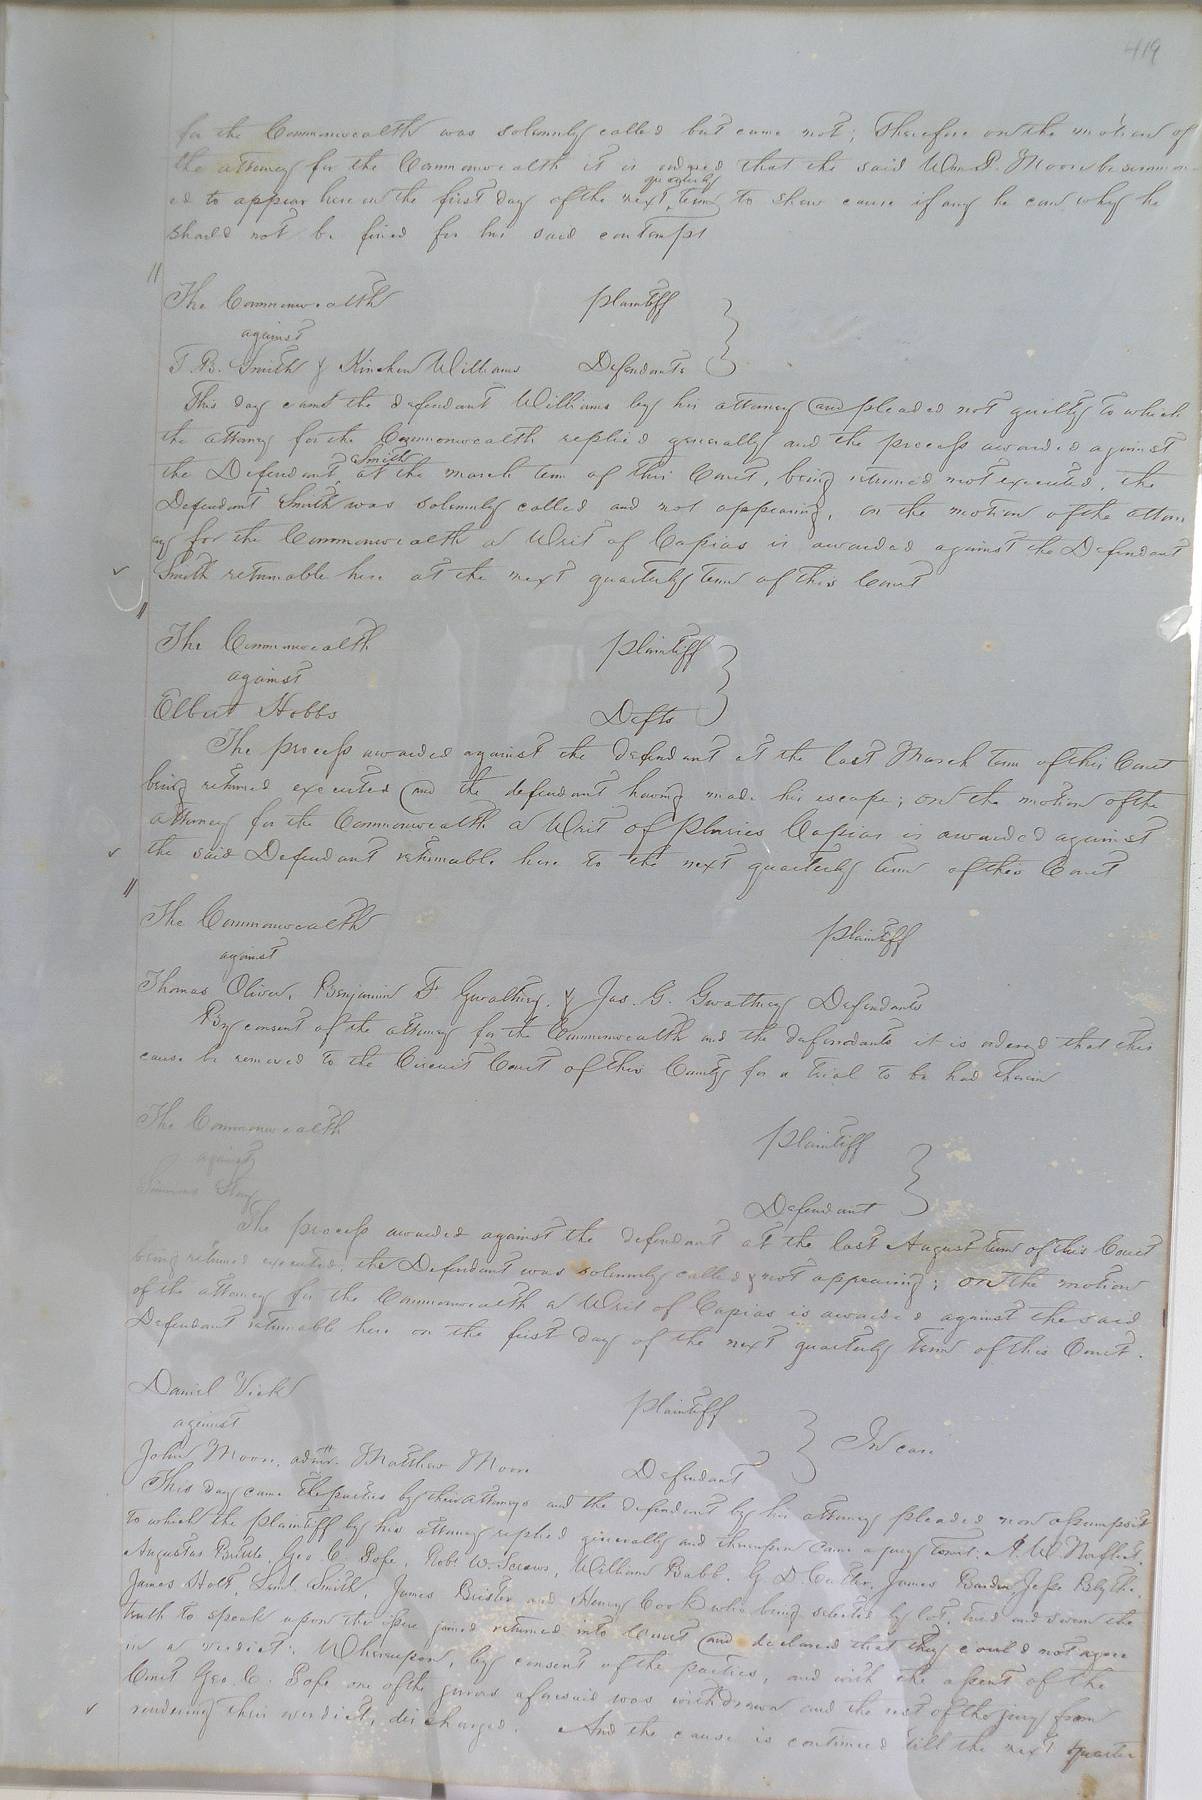 419
for the Commonwealth was solemnly called but came not; Therefore on the motion of
the attorney for the Commonwealth it is ordered that the said Wm P. Moore be summon
ed to appear here on the first day of the next quarterly term to shew cause if any he can why he
should not be fined for his said contempt
The Commonwealth Plaintiff
against
T. B. Smith & Kinchen Williams Defendants
This day came the defendant Williams by his attorney and pleaded not guilty to which
the attorney for the Commonwealth replied generally and the process awarded against
the Defendant Smith at the march term of this Court, being returned not executed, the
Defendant Smith was solemnly called and not appearing, on the motion of the attorn
ey for the Commonwealth a Writ of Capias is awarded against the Defendant
Smith returnable here at the next quarterly term of this Court
The Commonwealth Plaintiff
against
Elbert Hobbs Defts
The process awarded against the defendant at the last March term of this Court
being returned executed and the defendant having made his escape; on the motion of the
attorney for the Commonwealth a Writ of Pluries Capias is awarded against
the said Defendant returnable here to the next quarterly term of this Court
The Commonwealth Plaintiff
against
Thomas Oliver, Benjamin F Gwathney, & Jas. G. Gwathney Defendants
By consent of the attorney for the Commonwealth and the defendants it is ordered that this
cause be removed to the Circuit Court of this County for a trial to be had therein
The Commonwealth Plaintiff
against
Defendant
The process awarded against the defendant at the last August term of this Court
being returned executed; the Defendant was solemnly called & not appearing; on the motion
of the attorney for the Commonwealth a Writ of Capias is awarded against the said
Defendant returnable here on the first day of the next quarterly term of this Court.
Daniel Vick Plaintiff
against In case
John Moore, admr. Matthew Moore Defendant
This day came the parties by their attorneys and the defendant by his attorney pleaded non assumpsit
to which the plaintiff by his attorney replied generally and thereupon came a jury towit: W. Norfleet,
Augustus Geo C. Pope, Robt W. William Babb, G. D. James Jesse Blythe,
James Holt, Smith, James Brister and Henry Cook who being selected by lot, tried and sworn the
truth to speak upon the issue joined returned into Court and declared that they could not agree
in a verdict. Whereupon, by consent of the parties, and with the assent of the
Court Geo. C. Pope one of the jurors aforesaid was withdrawn and the rest of the jury from
rendering their verdict, discharged. And the cause is continued till the next quarter